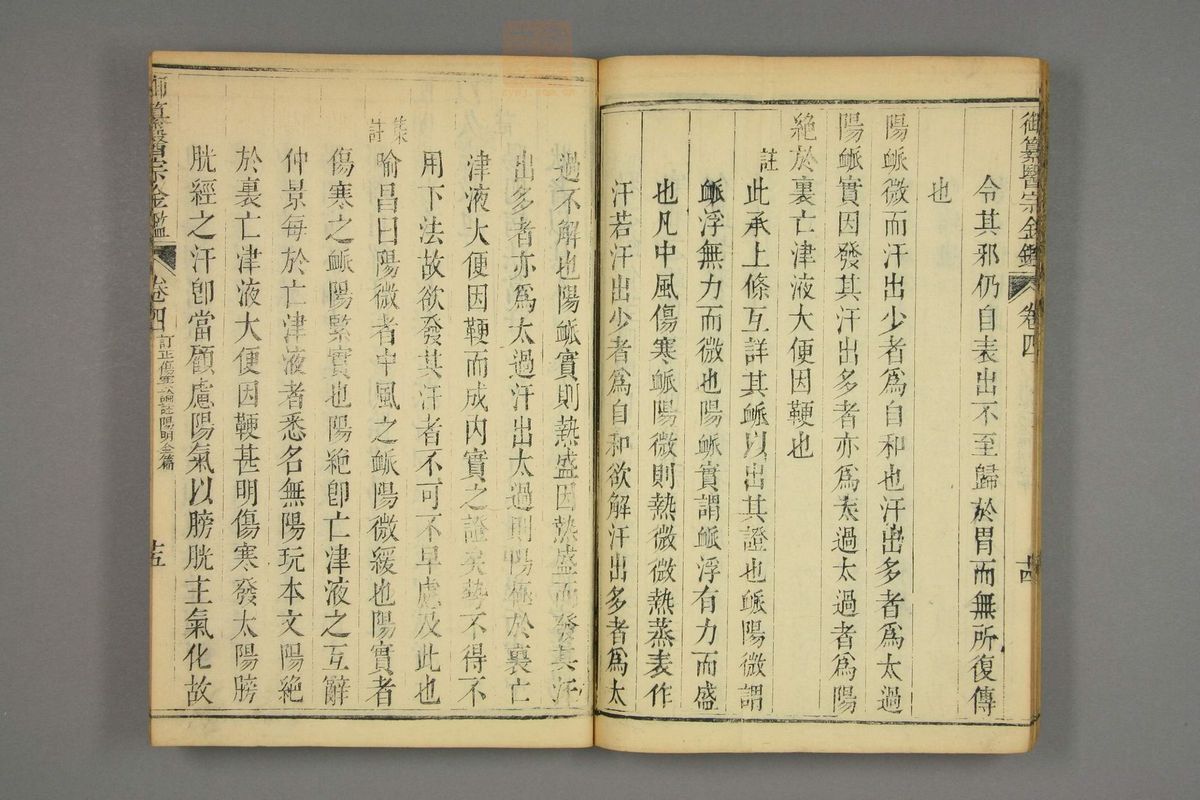 御纂醫宗金鑑
卷四
令其邪仍自表出不至歸於胃而無所復傳
也
陽脈微而汗出少者爲自和也汗出多者爲太過
陽脈實因發其汗出多者亦爲太過太過者爲陽
絶於裏亡津液大便因鞕也
註
此承上條互詳其脈以出其證也脈陽微謂
脈浮無力而微也陽脈實謂脈浮有力而盛
也凡中風傷寒脈陽微則熱微微熱蒸表作
汗若汗出少者爲自和欲解汗出多者爲太
過不解也陽脈實則熱盛因熱盛而發其汗
出多者亦爲太過汗出太過則陽極於裏亡
津液大便因鞕而成内實之證矣勢不得不
用下法故欲發其汗者不可不早慮及此也
集註
喻昌曰陽微者中風之脈陽微緩也陽實者
傷寒之脈陽緊實也陽絶卽亡津液之互辭
仲景每於亡津液者悉名無陽玩本文陽絶
於裏亡津液大便因鞕甚明傷寒發太陽膀
胱經之汗卽當顧慮陽氣以膀胱主氣化故
御纂醫宗金鑑
卷四
訂正傷寒論註陽明全篇